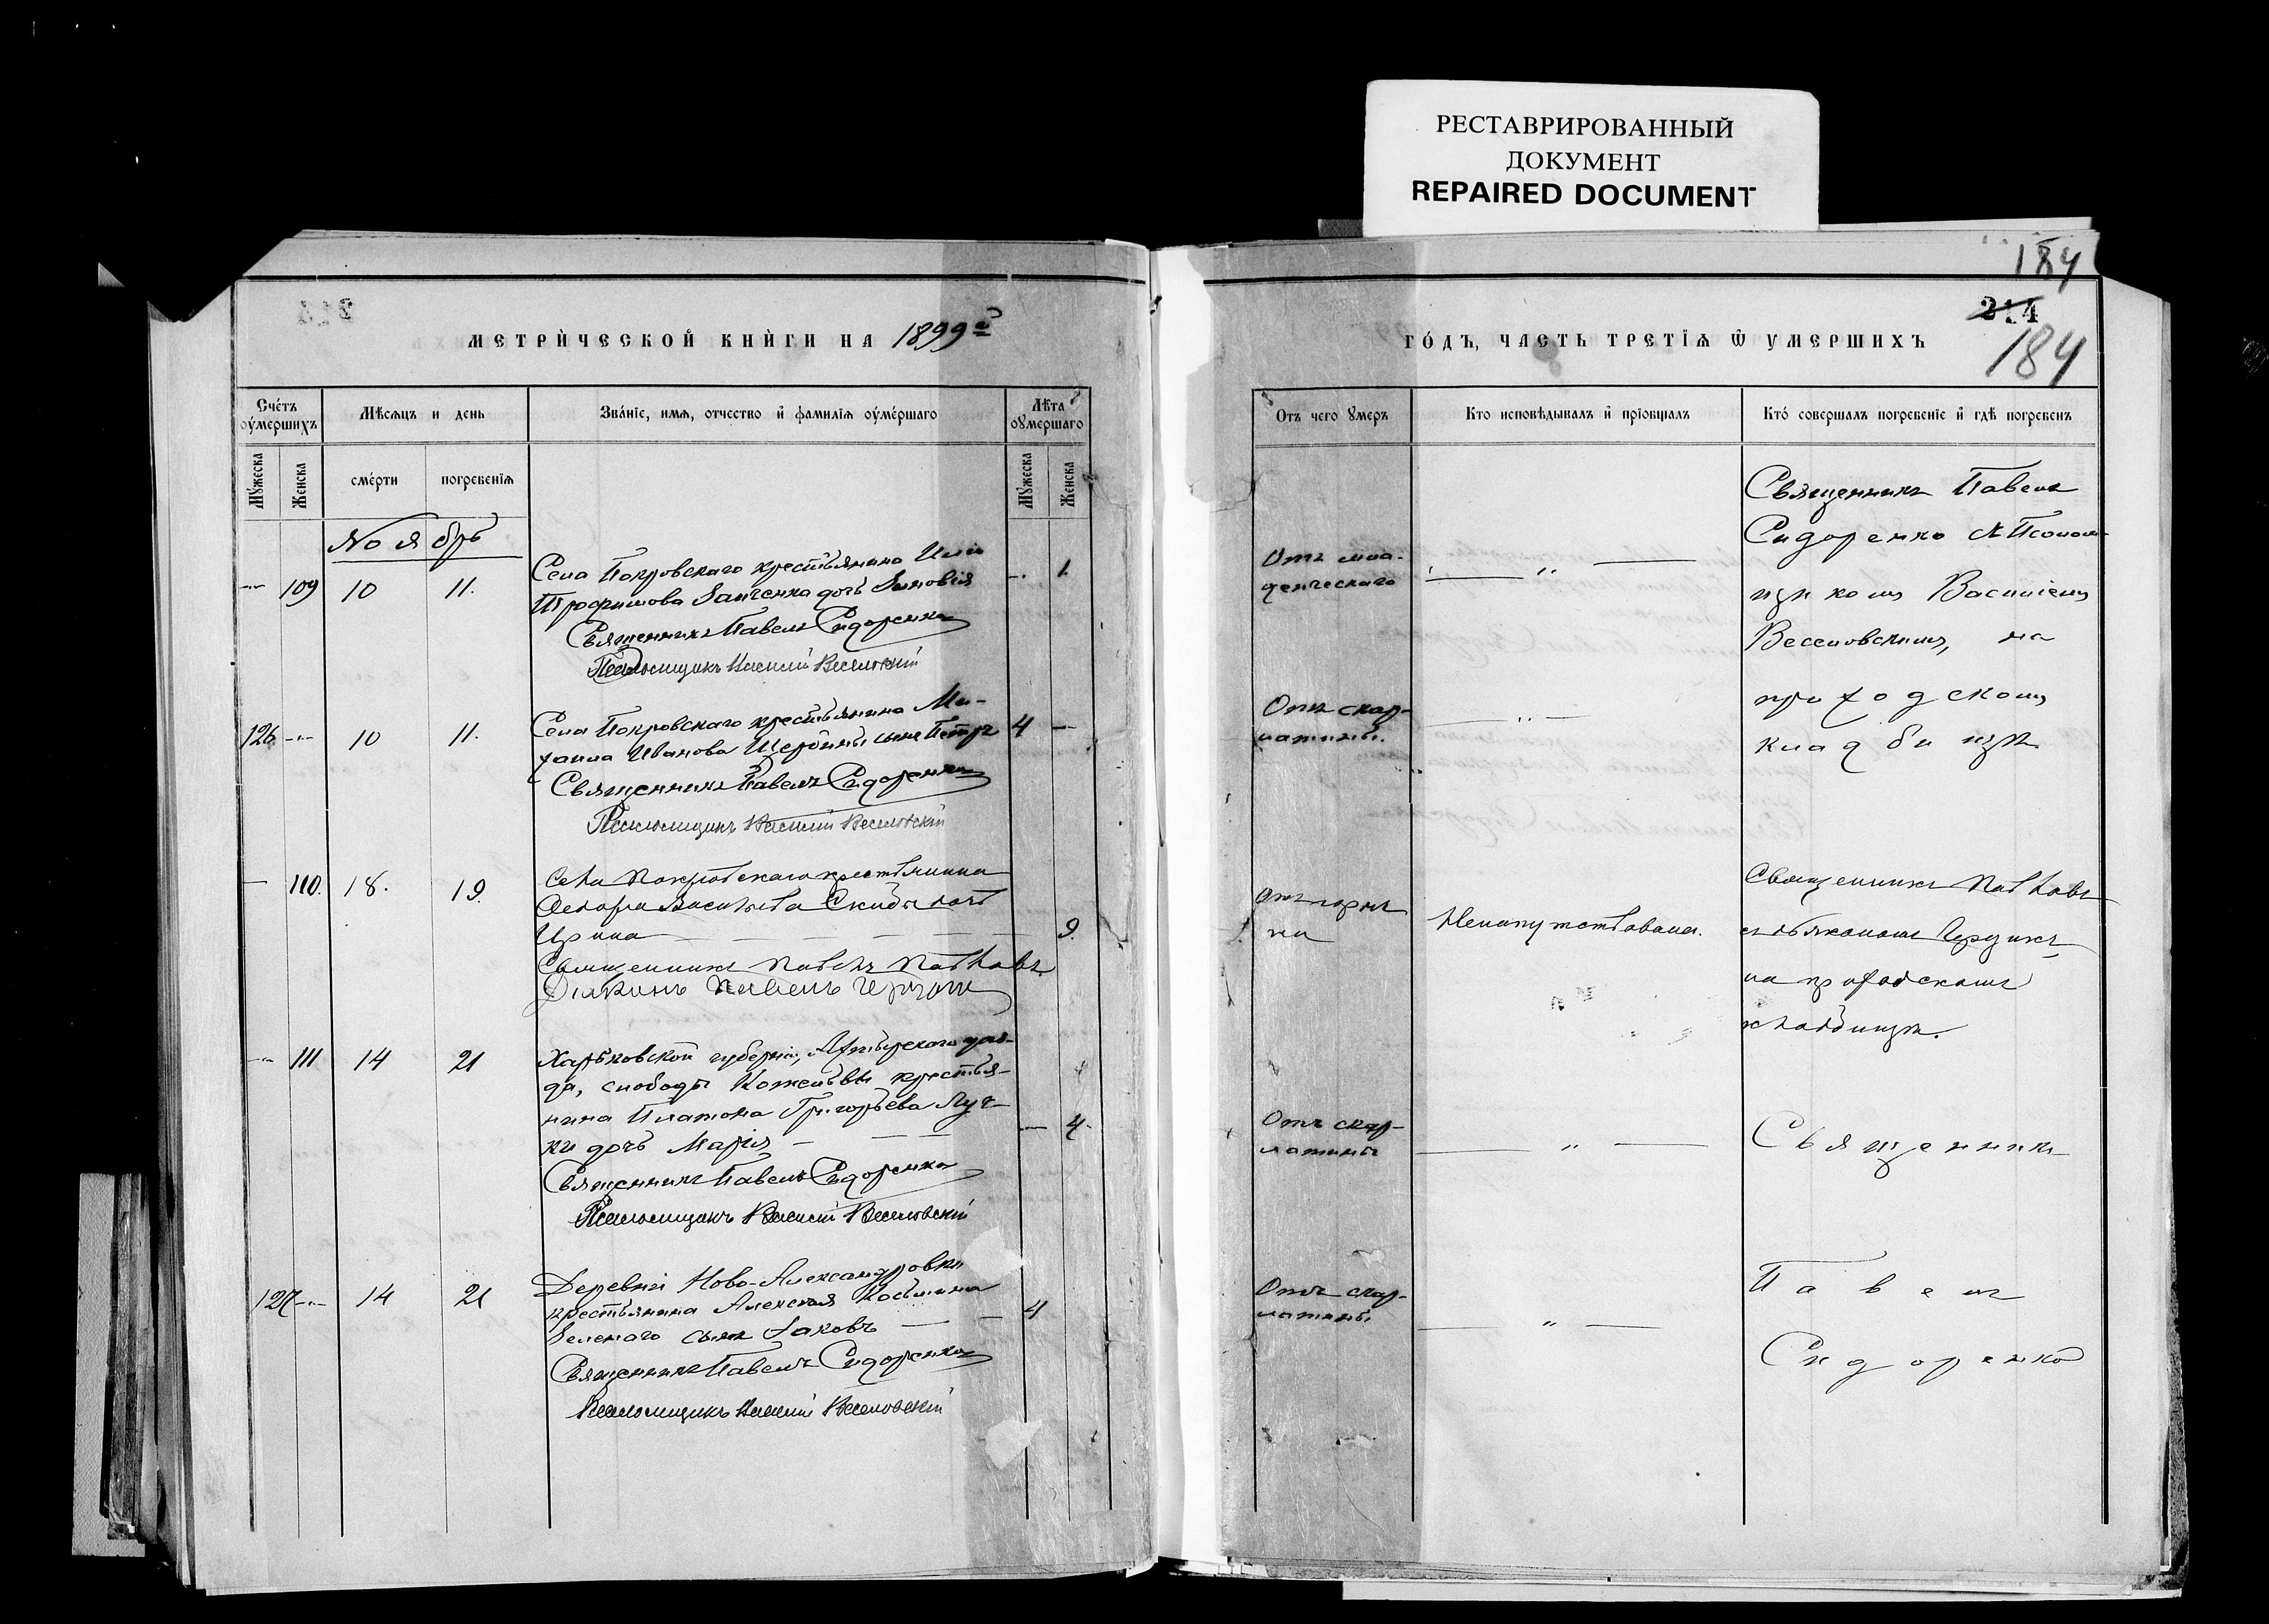 РЕСТАВРИРОВАННЫЙ
ДОКУМЕНТ
REPAIRED DOCUMENT
184
214
184
МЕТРИЧЕСКОЙ КНИГИ НА 1899й
ГОДЪ, ЧАСТЬ ТРЕТІѦ Ѿ УМЕРШИХЪ
Счетъ оумершихъ
Мѣсѧцъ и день
Званіе, имѧ, отчество и фамиліѧ оумершаго
Лѣта оумершаго
Мужеска
Женска
смерти
погребеніѧ
Мужеска
Женска
Отъ чего умеръ
Кто исповѣдывалъ и пріобщалъ
Кто совершалъ погребеніе и гдѣ погребенъ
Ноябрь
109 10 11.
Села Покровскаго крестьянина
Трофимова дочь Зиновія
1.
Священникъ Павелъ Сидоренко
Псаломщикъ Василій Веселовскій
Отъ мла-
денческаго
Священникъ Павелъ
Сидоренко
щикомъ Василіемъ
Веселовскимъ, на
приходскомъ
кладбищѣ.
126 10 11.
Села Покровскаго крестьянина Ми-
хаила Иванова Щербины сынъ Петръ
4
Священникъ Павелъ Сидоренко
Псаломщикъ Василій Веселовскій
Отъ скар-
латины.
110. 18. 19.
Села Покровскаго крестьянина
Ѳедора Васильева дочь
Ирина
9.
Священникъ Павелъ Павловъ
Діаконъ Павелъ
Ненапутствована.
Священникъ Павловъ
съ діакономъ
на приходскомъ
кладбищѣ.
111 14 21
Харьковской губерніи, Ахтырскаго уѣз-
да, слободы Котельвы крестья-
нина Платона Григорьева Луч-
ки дочь Марія
4.
Священникъ Павелъ Сидоренко
Псаломщикъ Василій Веселовскій
Отъ скар-
латины
Священникъ
127 14 21
Деревни Ново-Александровки
крестьянина Алексѣя Косьмина
Зеленаго сынъ Іаковъ
4
Священникъ Павелъ Сидоренко
Псаломщикъ Василій Веселовскій
Отъ скар-
латины
Павелъ
Сидоренко